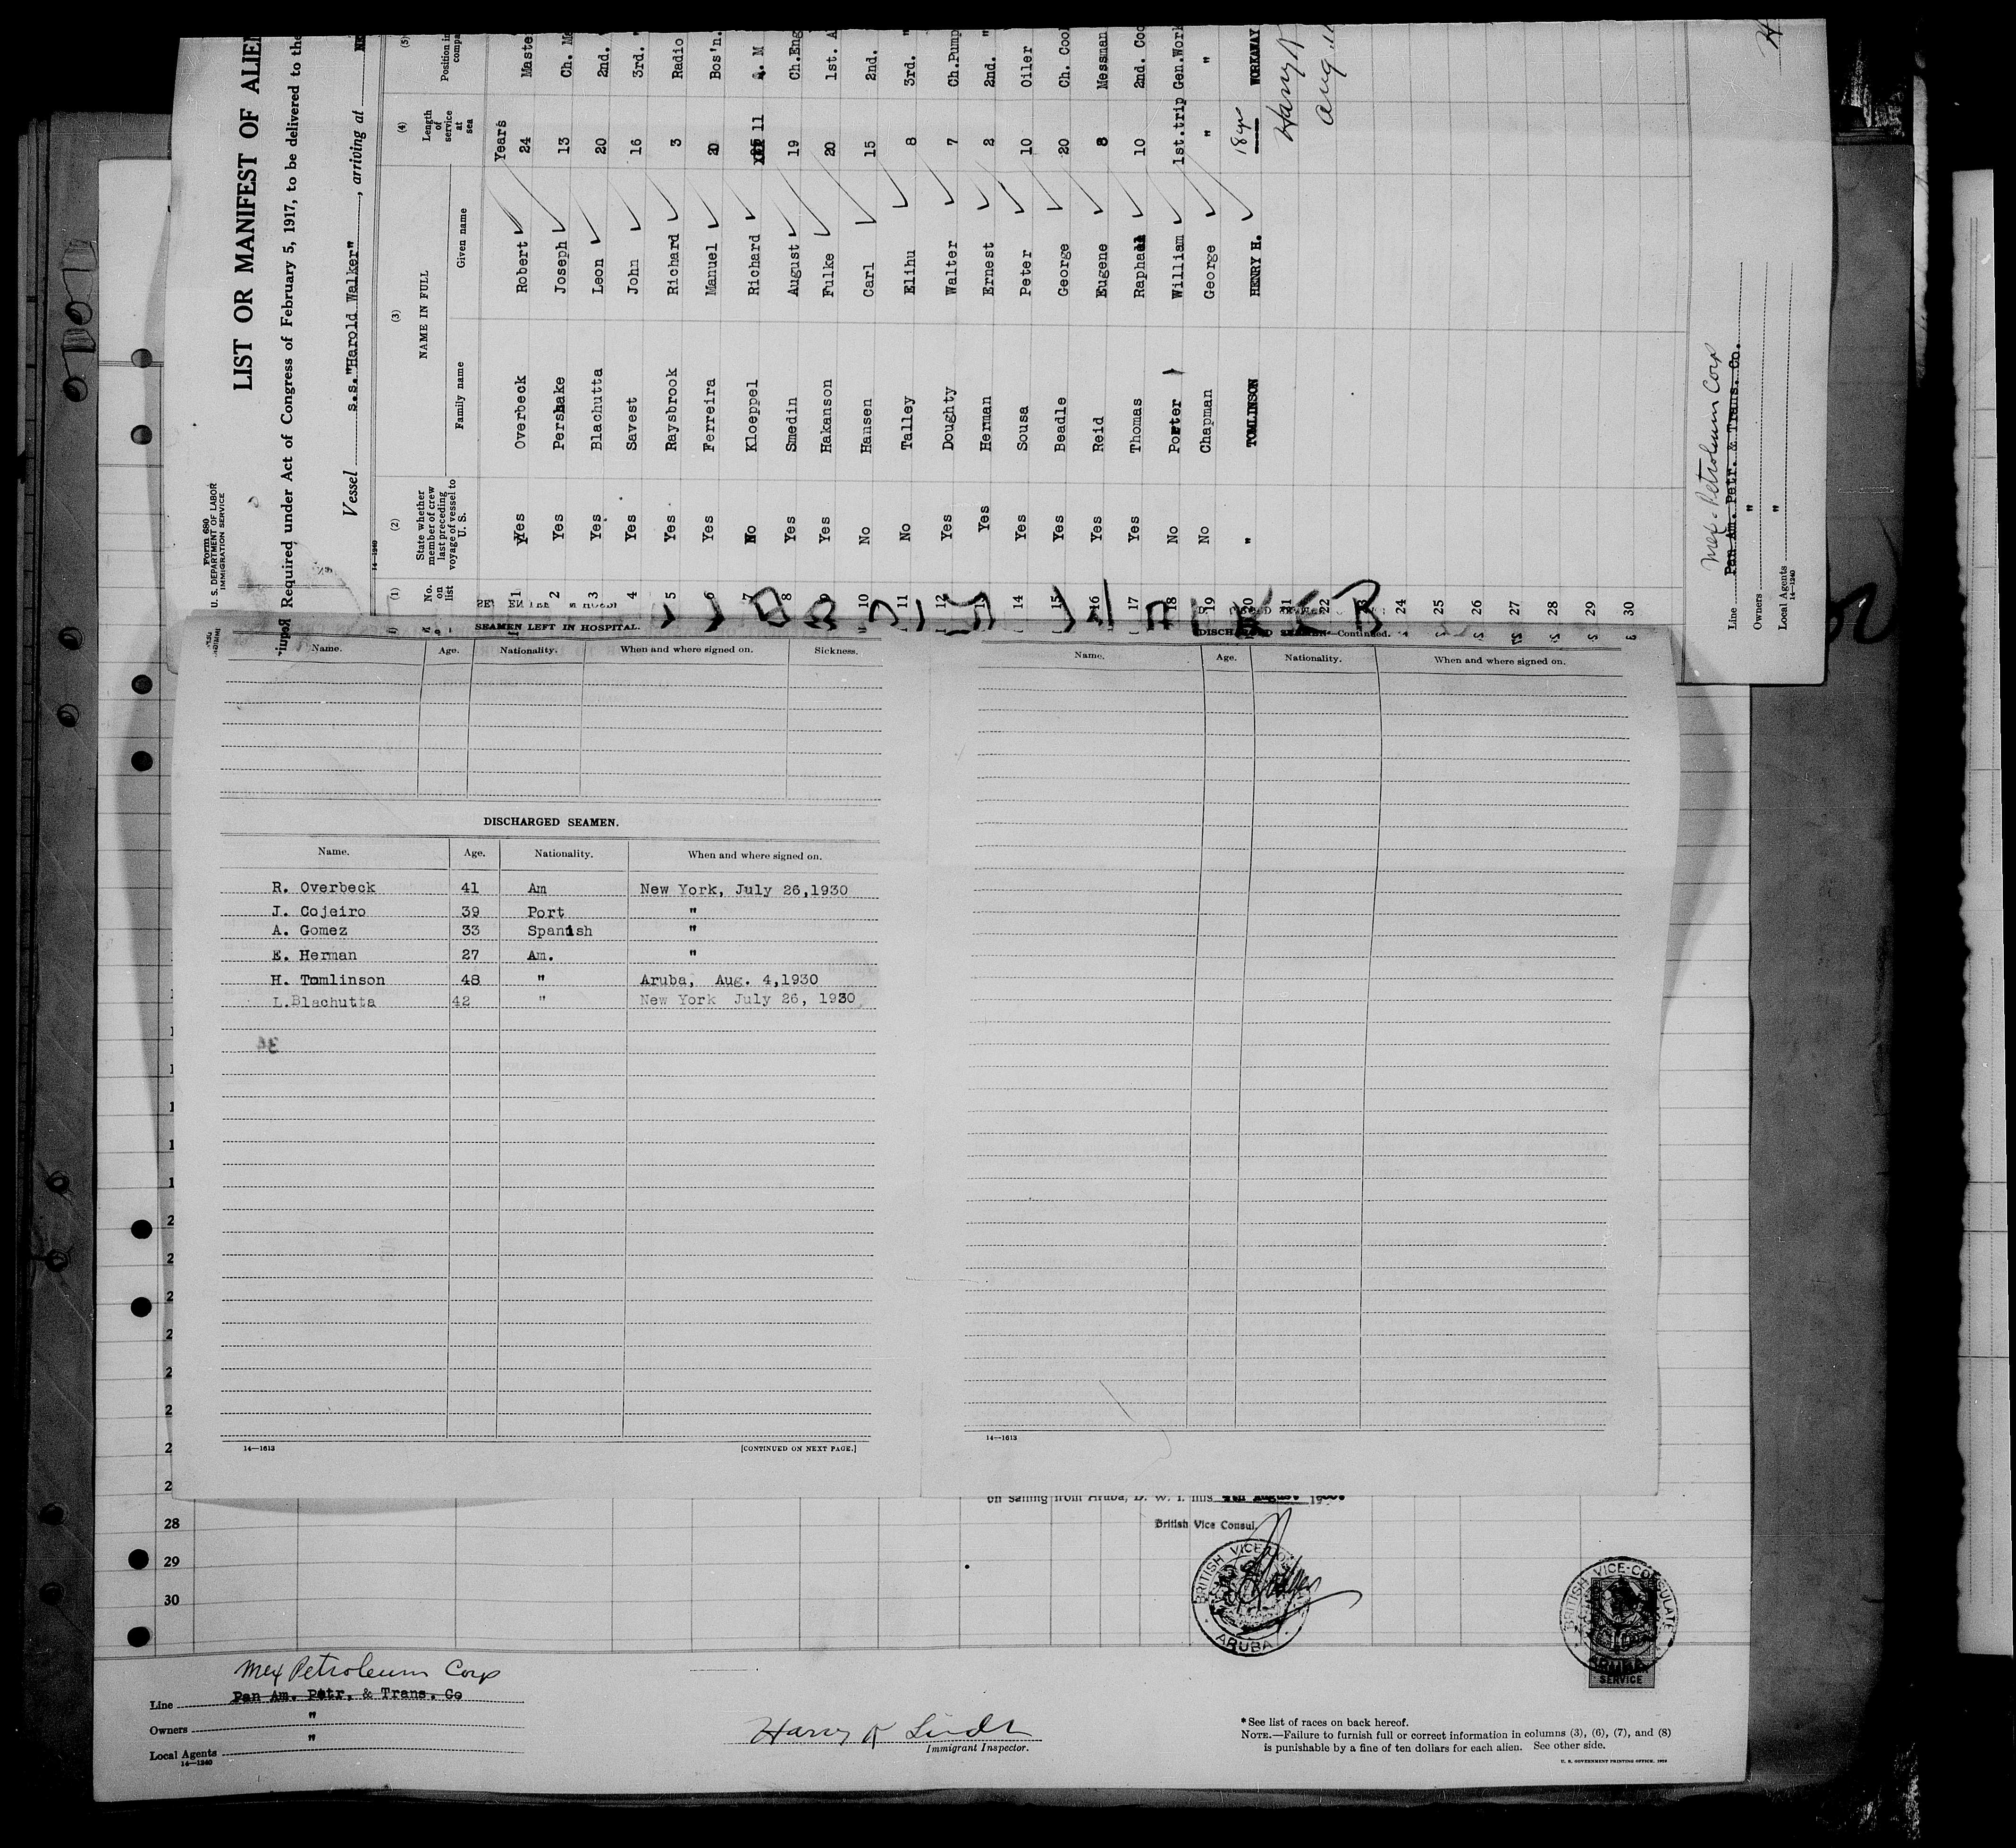 Form 680
U. S. DEPARTMENT OF LABOR
IMMIGRATION SERVICE
LIST OR MANIFEST OF ALIEN
Required under Act of Congress of February 5, 1917, to be delivered to the
Vessel s.s."Harold Walker", arriving at
14-1240
(1) (2) (3) (4) (5)
No. on list
State whether member of crew last preceding voyage of vessel to U. S.
NAME IN FULL
Family name Given name
Length of service at sea
Position in
Years
1 Yes Overbeck Robert 24
2 Yes Pershake Joseph 13 Ch.
3 Yes Blachutta Leon 20 2nd.
4 Yes Savest John 16 3rd. "
5 Yes Raysbrook Richard 3 Radio
6 Yes Ferreira Manuel 20 Bos'n.
7 No Kloeppel Richard 11
8 Yes Smedin August 19 Ch.Eng
9 Yes Hakanson Fulke 20 1st. A
10 No Hansen Carl 15 2nd.
11 No Talley Elihu 8 3rd. "
12 Yes Doughty Walter 7 Ch.Pump
13 Yes Herman Ernest 2 2nd. "
14 Yes Sousa Peter 10 Oiler
15 Yes Beadle George 20 Ch. Cook
16 Yes Reid Eugene 8 Messman
17 Yes Thomas Raphael 10 2nd. Coo
18 No Porter William 1st.trip Gen.Work
19 No Chapman George " "
20 " TOMLINSON HENRY H. 18 yrs WORKAWAY
Harry R
Aug.
22
24
25
26
27
28
29
30
Mex. Petroleum Corp
Line Pan Am. Petr. & Trans. Co.
Owners "
Local Agents "
14-1240
WALKER
SEAMEN LEFT IN HOSPITAL.
Name. Age. Nationality. When and where signed on. Sickness.
DISCHARGED SEAMEN.
Name. Age. Nationality. When and where signed on.
R. Overbeck 41 Am New York, July 26,1930
J. Cojeiro 39 Port "
A. Gomez 33 Spanish "
E. Herman 27 Am. "
H. Tomlinson 48 " Aruba, Aug. 4,1930
L.Blachutta 42 " New York July 26, 1930
34
14—1613
[CONTINUED ON NEXT PAGE.]
DISCHARGED SEAMEN—Continued.
Name. Age. Nationality. When and where signed on.
14—1613
on sailing from Aruba, D. W. I. this 4th August 19
British Vice Consul.
BRITISH VICE-CONSULATE
ARUBA
BRITISH VICE-CONSULATE
ARUBA
SERVICE
28
29
30
Mex Petroleum Corp
Line Pan Am. Petr. & Trans. Co
Owners "
Local Agents "
14—1240
Harry R
Immigrant Inspector.
* See list of races on back hereof.
NOTE.—Failure to furnish full or correct information in columns (3), (6), (7), and (8)
is punishable by a fine of ten dollars for each alien. See other side.
U. S. GOVERNMENT PRINTING OFFICE.